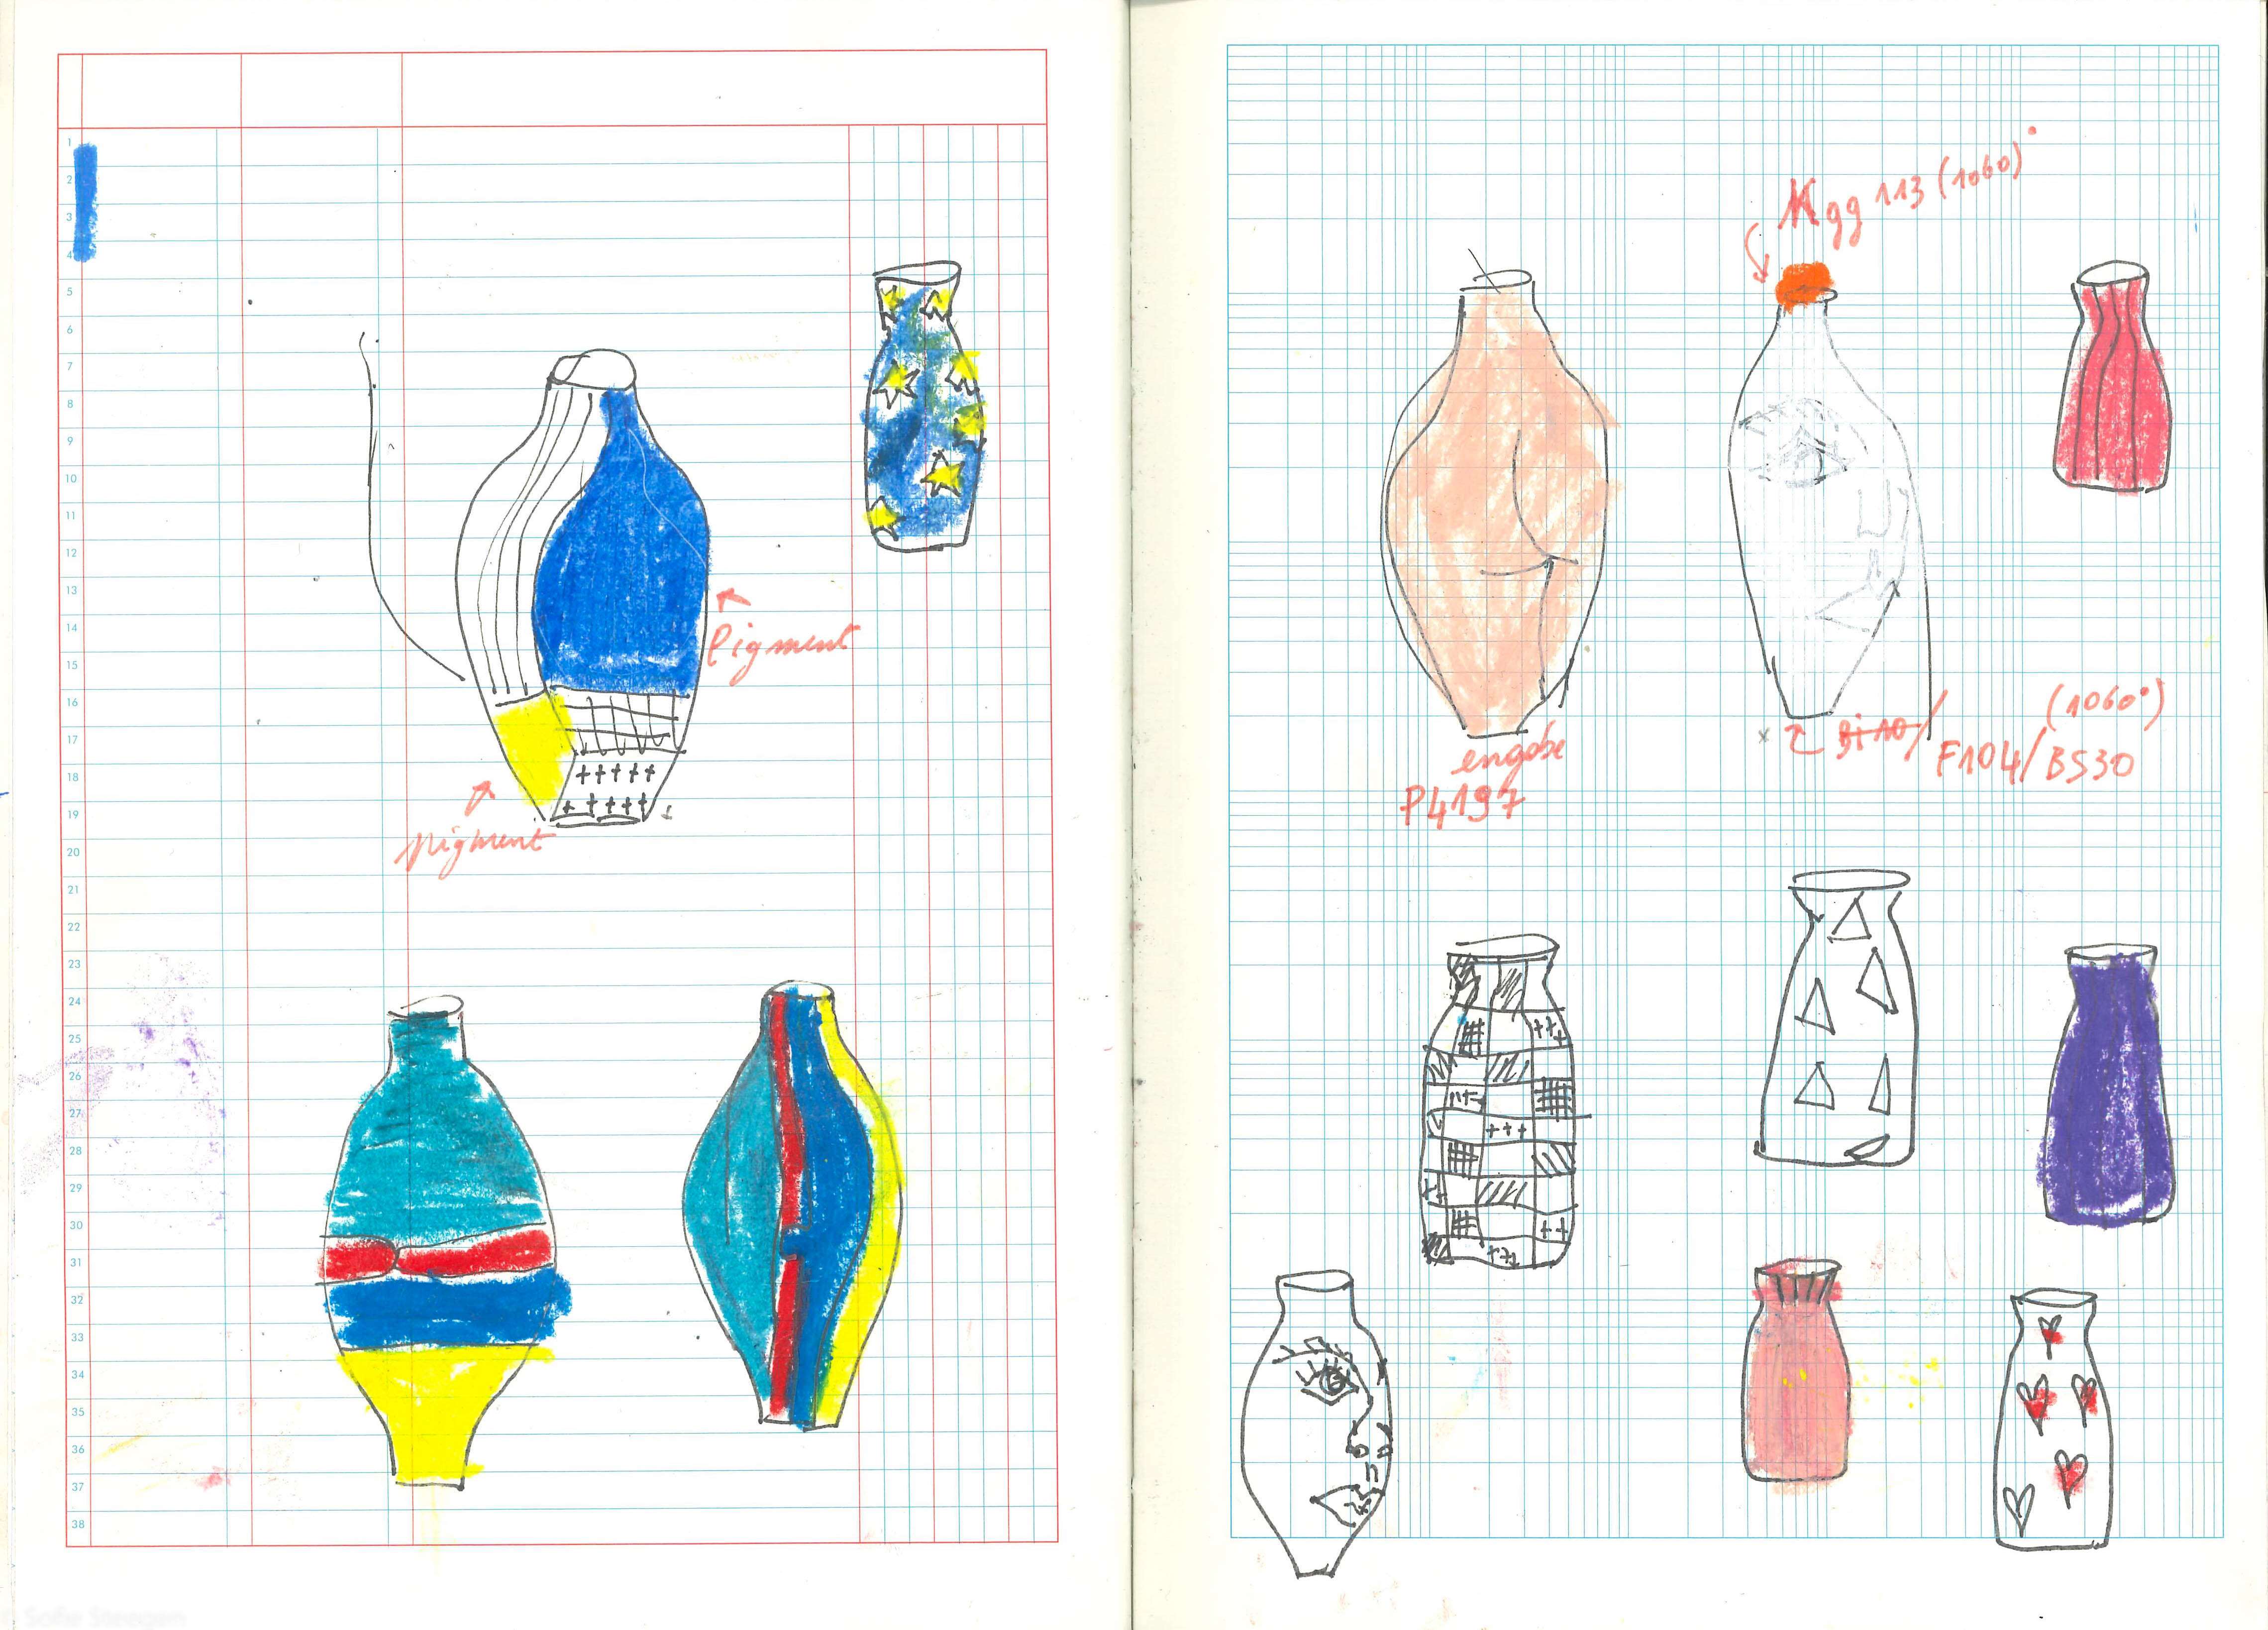 1
2
3
4
5
6
7
8
9
10
11
12
13
14
15
16
17
18
19
20
21
22
23
24
25
26
27
28
29
30
31
32
33
34
35
36
37
38
Pigment
pigment
Kgg 113 (1060)°
engobe
P4197
Bi10/
(1060°)
F104/BS30
© Sofie Steegen